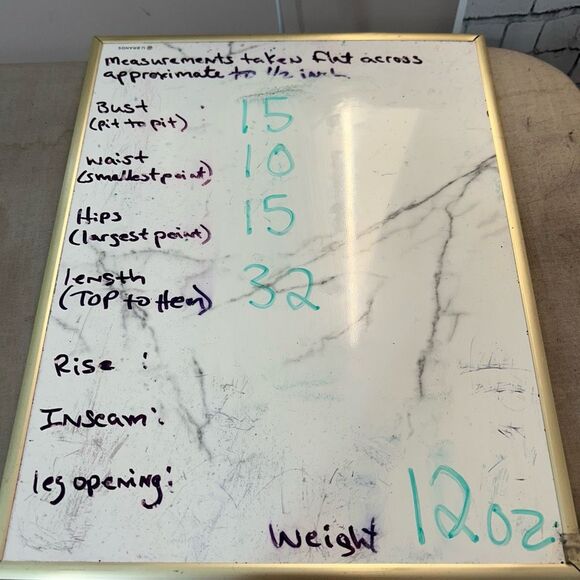 U BRANDS
Measurements taken flat across
approximate to 1/2 inch
Bust 15
(pit to pit)
waist 10
(smallest point)
Hips 15
(largest point)
length 32
(TOP to Hem)
Rise :
Inseam:
leg opening:
Weight 12oz